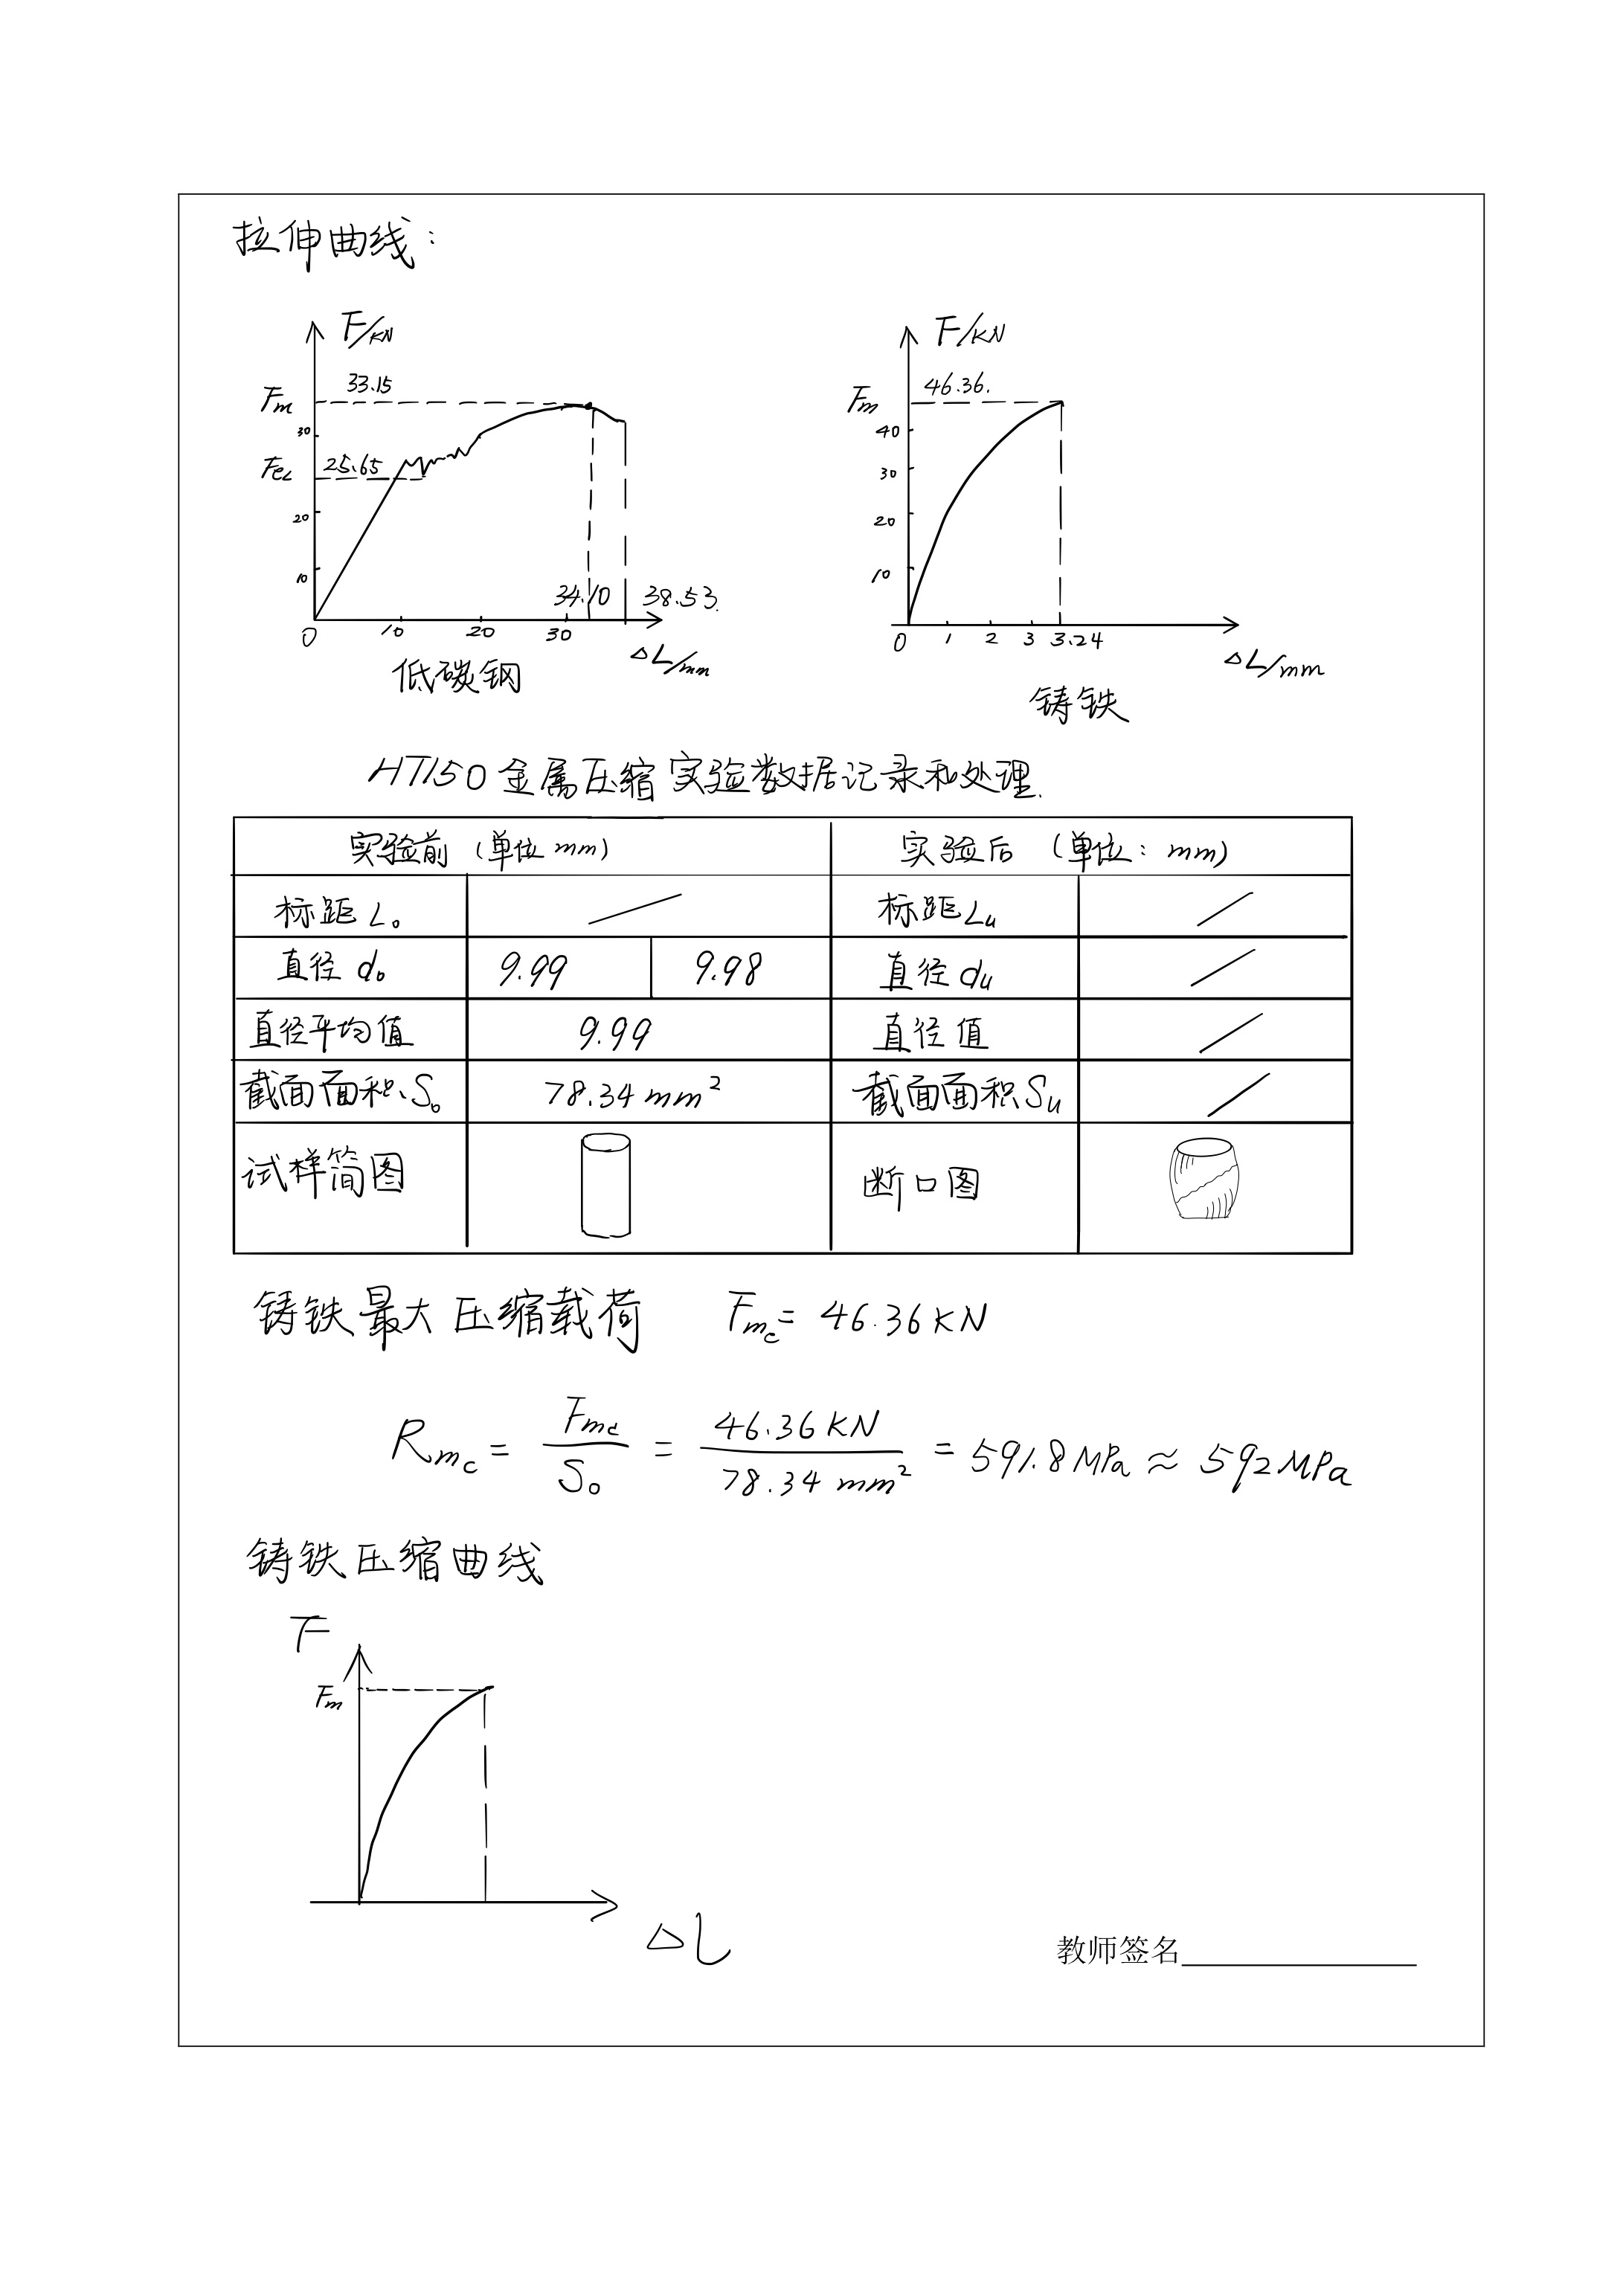 拉伸曲线:
F/kN
Fm 33.15
30
FeL 25.65
20
10
34.10 38.53.
0 10 20 30
ΔL/mm
低碳钢
F/kN
Fm 46.36.
40
30
20
10
0 1 2 3 3.24
ΔL/mm
铸铁
HT150金属压缩实验数据记录和处理.
实验前 (单位 mm) 实验后 (单位: mm)
标距 L₀ / 标距 Lu /
直径 d₀ 9.99 9.98 直径 du /
直径平均值 9.99 直径值 /
截面面积 S₀ 78.34 mm² 截面面积 Su /
试样简图 断口图
铸铁最大压缩载荷 Fmc = 46.36 kN
Rmc = Fmc/S₀ = 46.36 kN/78.34 mm² = 591.8 MPa ≈ 592 MPa
铸铁压缩曲线
F
Fm
ΔL
教师签名